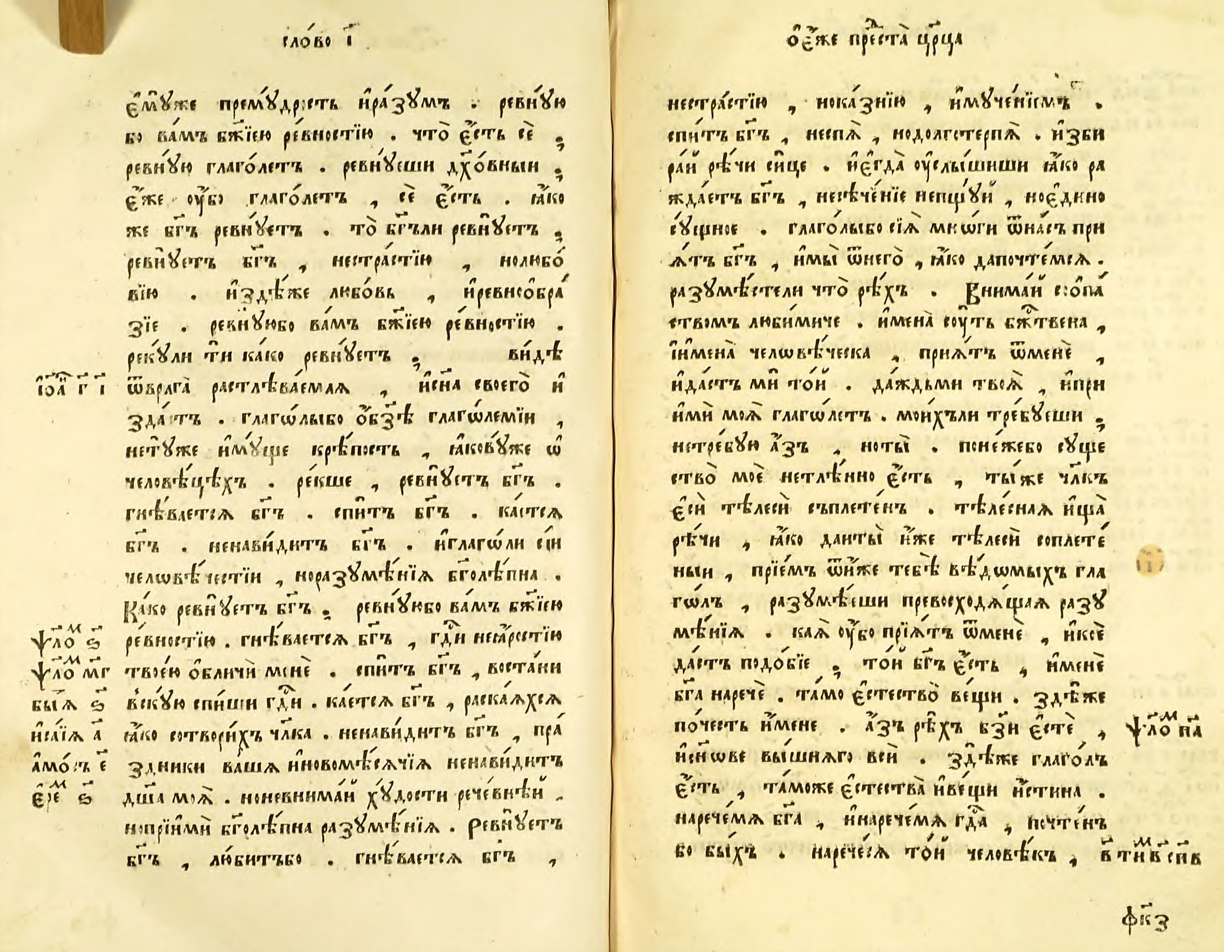 сло́во і҃
є҆мꙋ́же премꙋ́дрость и҆ра́зꙋмъ . ревнꙋ́ю
бо ва́мъ бж҃їею ре́вностїю . что̀ є҆́сть сѐ ;
ревнꙋ́ю глаго́летъ . ревнꙋ́еши дх҃о́вныи ;
є҆́же ᲂу҆́бо глаго́летъ , сѐ є҆́сть . ꙗ҆́ко
же бг҃ъ ревнꙋ́етъ . то̀ бг҃ъли ревнꙋ́етъ ;
ревнꙋ́етъ бг҃ъ , нестра́стїю , нолюбо́
вїю . и҆здѣ́же любо́вь , и҆ревноѻ҆бра́
зїе . ревнꙋ́юбо ва́мъ бж҃їею ре́вностїю .
реку́ли ти ка́ко ревнꙋ́етъ ; ви́дѣ
ѿврага̀ растлѣва́емаѧ , и҆сн҃а своего̀ и҆
зда́стъ . глаго́лыбо ѻ҆бз҃ѣ глаго́лемїи ,
нетꙋ́же и҆мꙋ́ще крѣ́пость , ꙗ҆ковꙋ́же ѡ҆
человѣ́цѣхъ . ре́кше , ревнꙋ́етъ бг҃ъ .
гнѣ́ваетсѧ бг҃ъ . спи́тъ бг҃ъ . ка́етсѧ
бг҃ъ . ненави́дитъ бг҃ъ . и҆глаго́ли сїи
человѣ́честїи , норазꙋмѣ́нїѧ бг҃олѣ́пна .
Ка́ко ревнꙋ́етъ бг҃ъ ; ревнꙋ́юбо ва́мъ бж҃їею
ре́вностїю . гнѣ́ваетсѧ бг҃ъ , гд҃и неꙗ҆́ростїю
твое́ю ѡ҆бличѝ менѐ . спи́тъ бг҃ъ , воста́ни
вскꙋ́ю спи́ши гд҃и . ка́етсѧ бг҃ъ , раска́ѧхсѧ
ꙗ҆́ко сотвори́хъ чл҃ка . ненави́дитъ бг҃ъ , пра́
здники ва́шѧ и҆новомѣ́сѧчїѧ ненави́дитъ
дш҃а моѧ̀ . ноневнима́й хꙋ́дости рече́внѣй .
нопрїимѝ бг҃олѣ́пна разꙋмѣ́нїѧ . Ревнꙋ́етъ
бг҃ъ , лю́битъбо . гнѣ́ваетсѧ бг҃ъ ,
і҆ѡа҃ г҃ і҃
ѱло́м ѕ҃
ѱло́м мг
бы́ѧ ѕ҃
и҆са́їѧ а҃
а҆мо́съ є҃
є҆ре́м ѕ҃
ѻ҆е҆́же прест҃а црц҃а
нестра́стїю , нока́знїю , и҆мꙋче́нїемъ .
спи́тъ бг҃ъ , неспѧ̀ , нодолготерпѧ̀ . и҆зби
ра́й рѣ́чи си́це . и҆є҆гда̀ ᲂу҆слы́шиши ꙗ҆́ко ра
жда́етъ бг҃ъ , несѣче́нїе непщꙋ́й , ноє҆ди́но
сꙋ́щное . глаго́лыбо сїѧ̀ мнѡ́ги ѿна́съ при
ѧ́тъ бг҃ъ , и҆мы̀ ѿнего̀ , ꙗ҆́ко дапочте́мсѧ .
разꙋмѣ́етели что̀ рѣ́хъ . Внима́й сѡ҆па́
ствомъ люби́миче . и҆мена̀ сᲂу́ть бж҃твена ,
и҆имена̀ человѣ́ческа , прїѧ́тъ ѿменѐ ,
и҆да́стъ мѝ то́й . да́ждьми твоѧ̀ , и҆при
и҆мѝ моѧ̀ глаго́летъ . мои́хъли тре́бꙋеши ;
нетре́бꙋю а҆́зъ , ноты̀ . поне́жебо сꙋ́ще
ство̀ моѐ нетлѣ́нно є҆́сть , ты́же чл҃къ
є҆сѝ тѣ́лесѝ съплете́нъ . тѣле́снаѧ и҆щѧ̀
рѣ́чи , ꙗ҆́ко даиты̀ и҆́же тѣ́лесѝ соплете́
ныи , прїе́мъ ѿи҆́же тебѣ̀ вѣ́домыхъ гла
го́лъ , разꙋмѣ́еши превосходѧ́щаѧ разꙋ
мѣ́нїѧ . каѧ̀ ᲂу҆́бо прїѧ́тъ ѿменѐ , и҆ксѐ
да́стъ подо́бїе ; то́й бг҃ъ є҆́сть , и҆́менѐ
бг҃а наречѐ . та́мо є҆стество̀ ве́щи . здѣ́же
по́честь и҆́мене . а҆́зъ рѣ́хъ бз҃и є҆стѐ ,
и҆сн҃ове вы́шнѧго всѝ . здѣ́же глаго́лъ
є҆́сть , та́може є҆стества̀ и҆ве́щи и҆́стина .
нарече́мѧ бг҃а , и҆нарече́мѧ гд҃а , почте́нъ
бо бы́хъ . нарече́сѧ то́й человѣ́къ ,
ѱло́м па
фк҃з